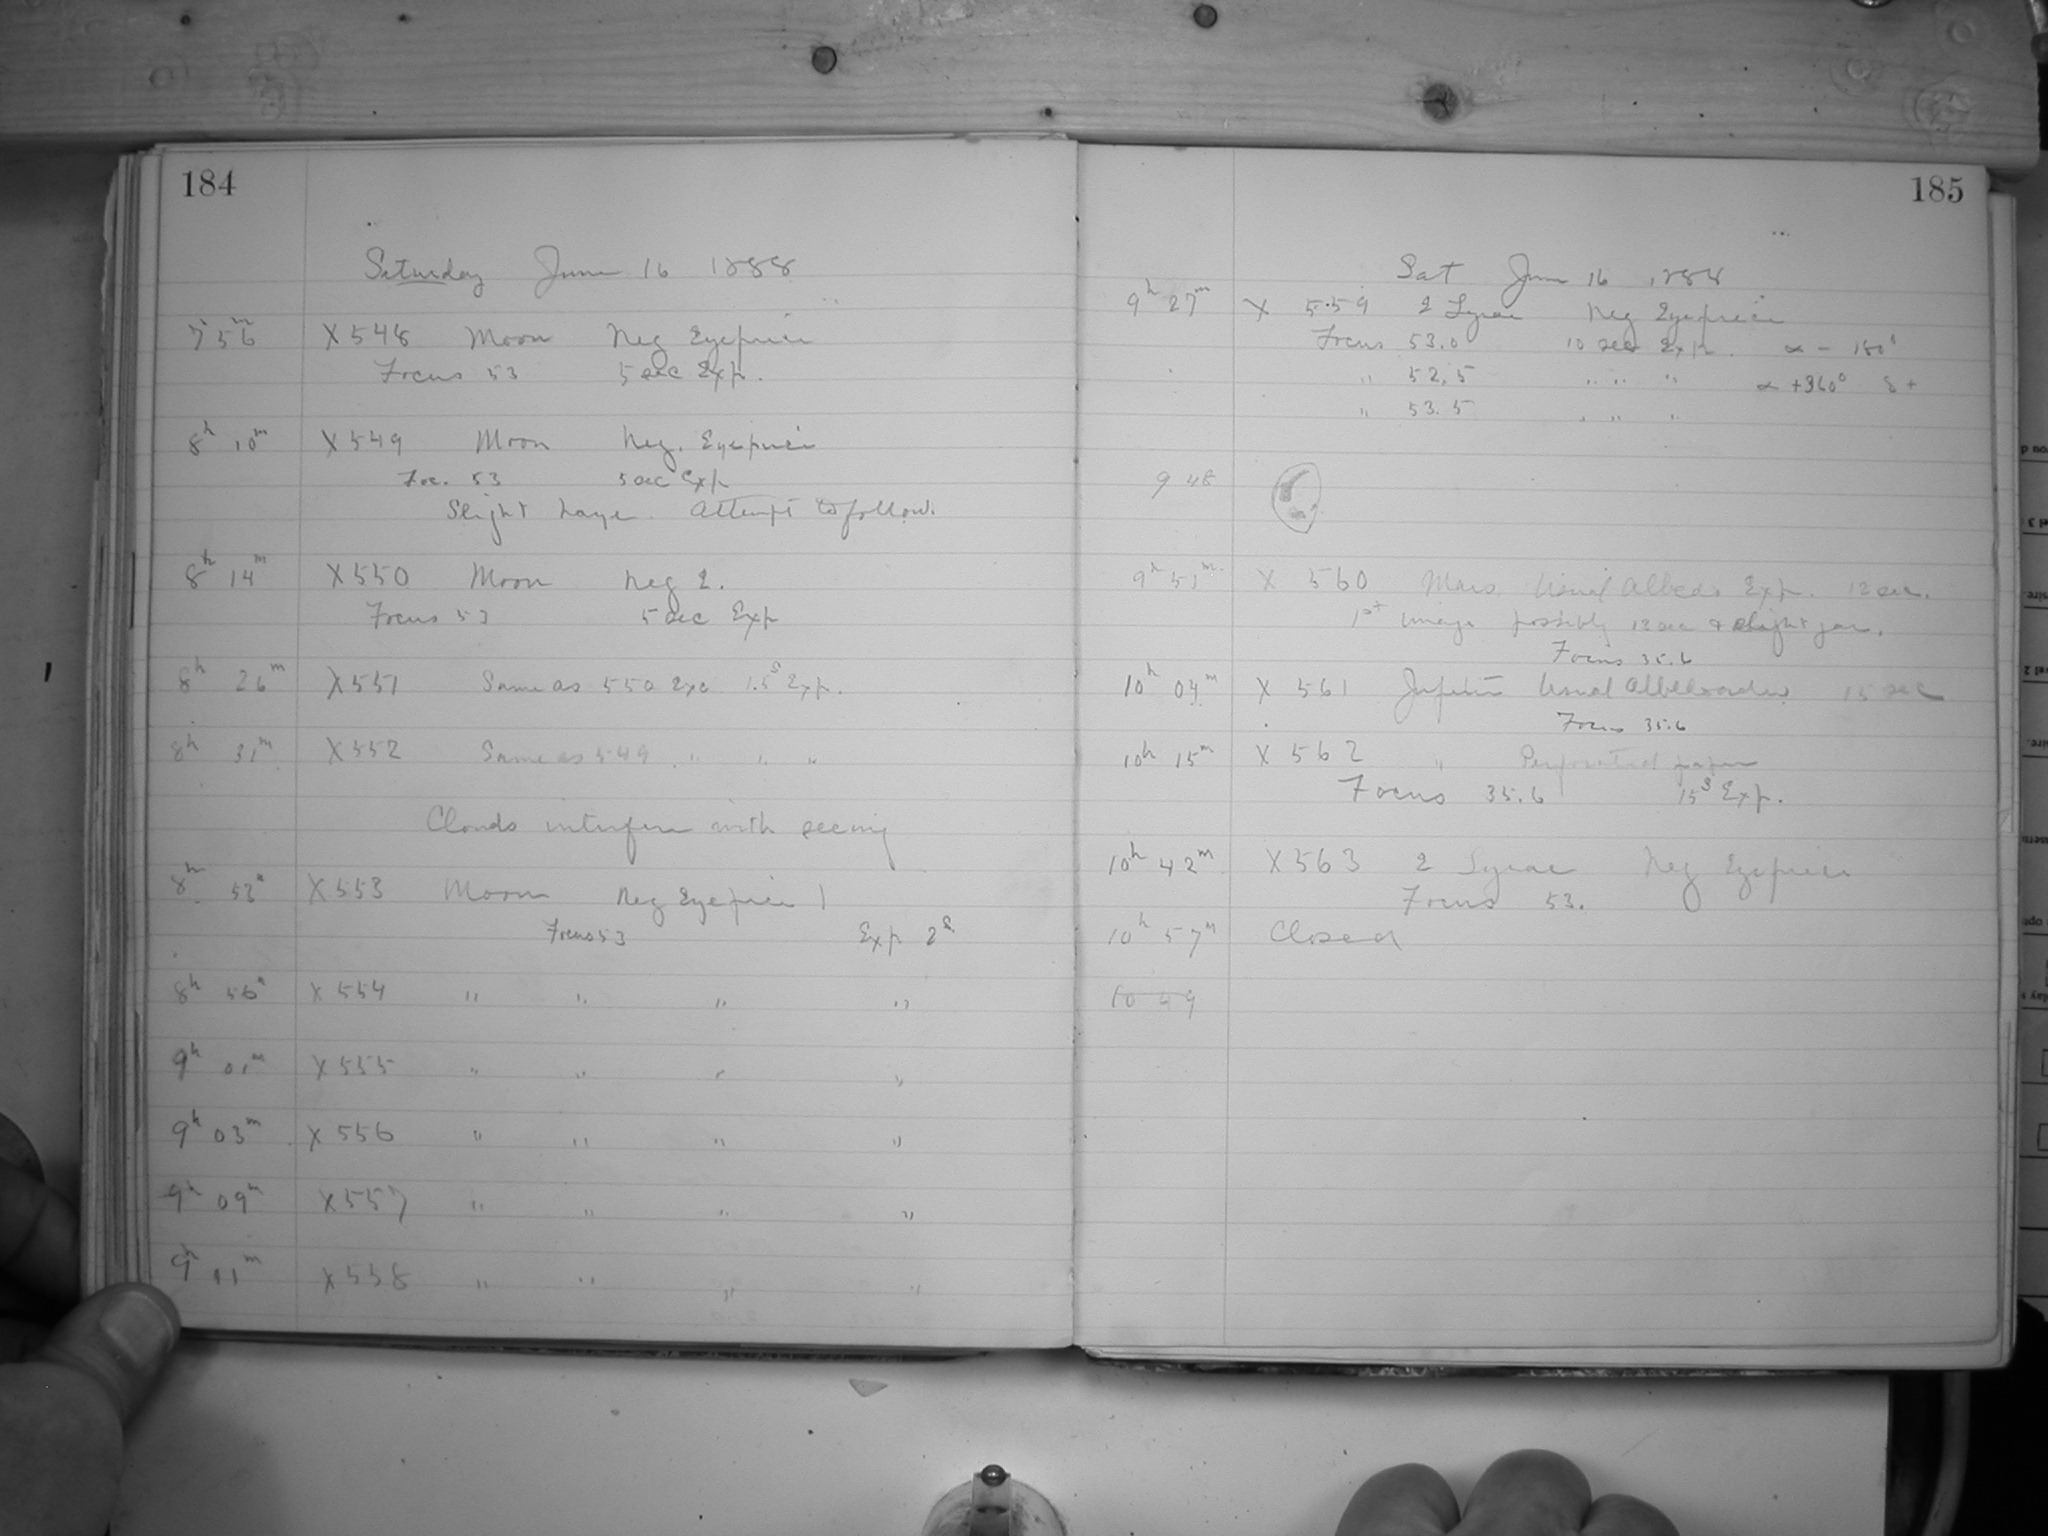 184
Saturday June 16 1888
7 56m X548 Moon Neg Eyepiece
Focus 53 5 sec Exp.
8h 10m X549 Moon Neg. Eyepiece
Foc. 53 5 sec Exp
Slight haze. Attempt to follow.
8h 14m X550 Moon Neg 2.
Focus 53 5 sec Exp
8h 26m X551 Same as 550 exc 1.5s Exp.
8h 31m X552 Same as 549 " " "
Clouds interfere with seeing
8h 53m X553 Moon Neg Eyepiece 1
Focus 53 Exp 2s
8h 56m X554 " " " "
9h 01m X555 " " " "
9h 03m X556 " " " "
9h 09m X557 " " " "
9h 11m X558 " " " "
185
Sat June 16 1888
9h 27m X 559 2 Lyrae Neg Eyepiece
Focus 53.0 10 sec Exp. α - 180°
" 52.5 " " " α +360° δ +
" 53.5 " " "
9 48
9h 51m X 560 Mars Usual Exp. 12 sec.
1st image possibly 12 sec & slight jar.
Focus 35.6
10h 04m X 561 Jupiter Usual 15 sec
Focus 35.6
10h 15m X 562 " Perforated paper
Focus 35.6 15s Exp.
10h 42m X563 2 Lyrae Neg Eyepiece
Focus 53.
10h 57m Closed
10 49